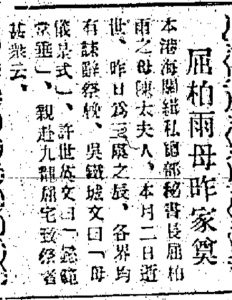 屈柏雨母昨家奠
本港海關緝私總部秘書長屈柏
雨之母陳太夫人、本月二日逝
世、昨日爲之辰、各界均
有誄辭祭輓、吳鐵城文曰「母
儀式」、許世英文曰「懿範
垂」、親赴九龍屈宅致祭者
甚衆云、